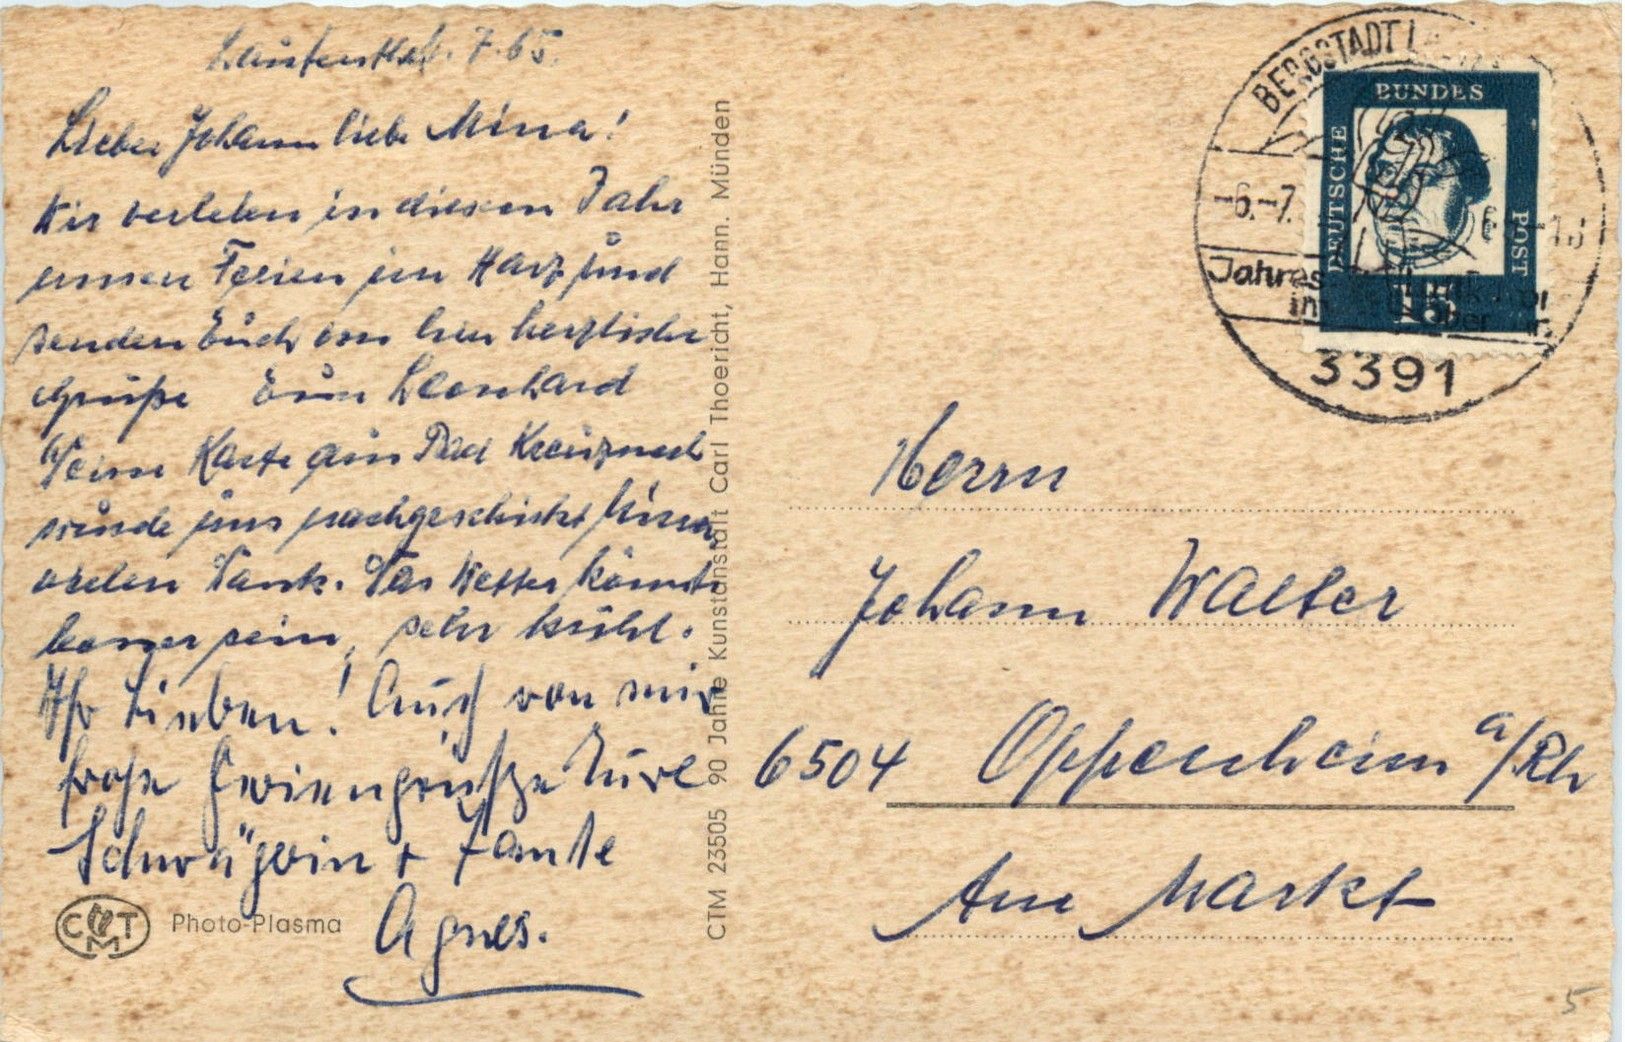 Lautenthal. 7.65.
Lieber Johann liebe Mina!
Wir verleben in diesem Jahr
unsere Ferien im Harz und
senden Euch von hier herzliche
Grüße Euer Leonhard
Deine Karte aus Bad Kreuznach
wurde uns nachgeschickt Mina,
vielen Dank. Das Wetter könnte
besser sein, sehr kühl.
Ihr Lieben! Auch von mir
frohe Feriengrüße Eure
Schwägerin + Tante
Agnes.
CMT
Photo-Plasma
CTM 23505 90 Jahre Kunstanstalt Carl Thoericht, Hann. Münden
BERGSTADT
-6.-7.
3391
DEUTSCHE BUNDES POST
15
Herrn
Johann Walter
6504 Oppenheim a/Rh
Am Markt
5